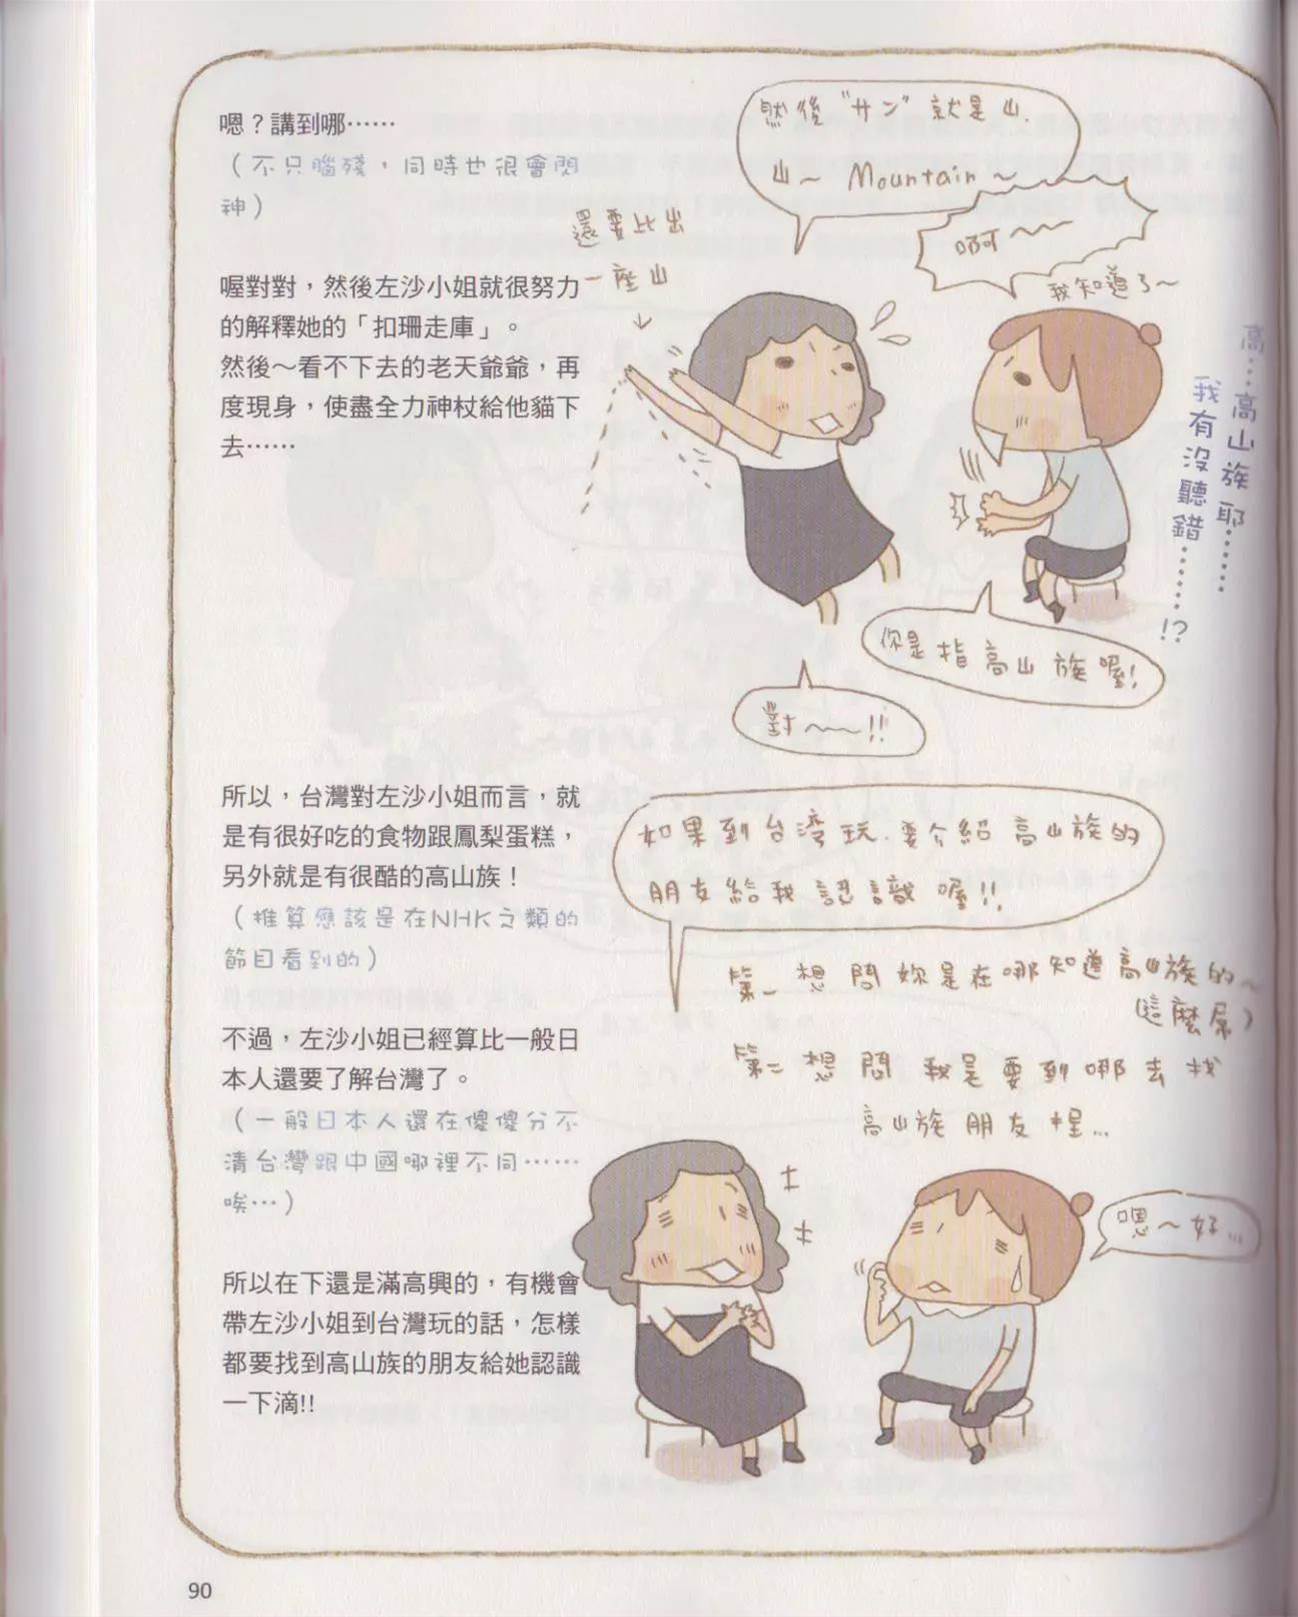 嗯？講到哪……
（不只腦殘，同時也很會閃
神）
喔對對，然後左沙小姐就很努力
的解釋她的「扣珊走庫」。
然後～看不下去的老天爺爺，再
度現身，使盡全力神杖給他貓下
去……
然後“サン”就是山.
山～ Mountain～
啊～～～
我知道了～
還要比出
一座山
高…高山族耶……
我有沒聽錯……!?
你是指高山族喔!
對～～!!
所以，台灣對左沙小姐而言，就
是有很好吃的食物跟鳳梨蛋糕，
另外就是有很酷的高山族！
（推算應該是在NHK之類的
節目看到的）
不過，左沙小姐已經算比一般日
本人還要了解台灣了。
（一般日本人還在傻傻分不
清台灣跟中國哪裡不同……
唉…）
所以在下還是滿高興的，有機會
帶左沙小姐到台灣玩的話，怎樣
都要找到高山族的朋友給她認識
一下滴!!
如果到台灣玩.要介紹高山族的
朋友給我認識喔!!
第一想問妳是在哪知道高山族的～
這麼屌）
第二想問我是要到哪去找
高山族朋友捏…
嗯～好…
90